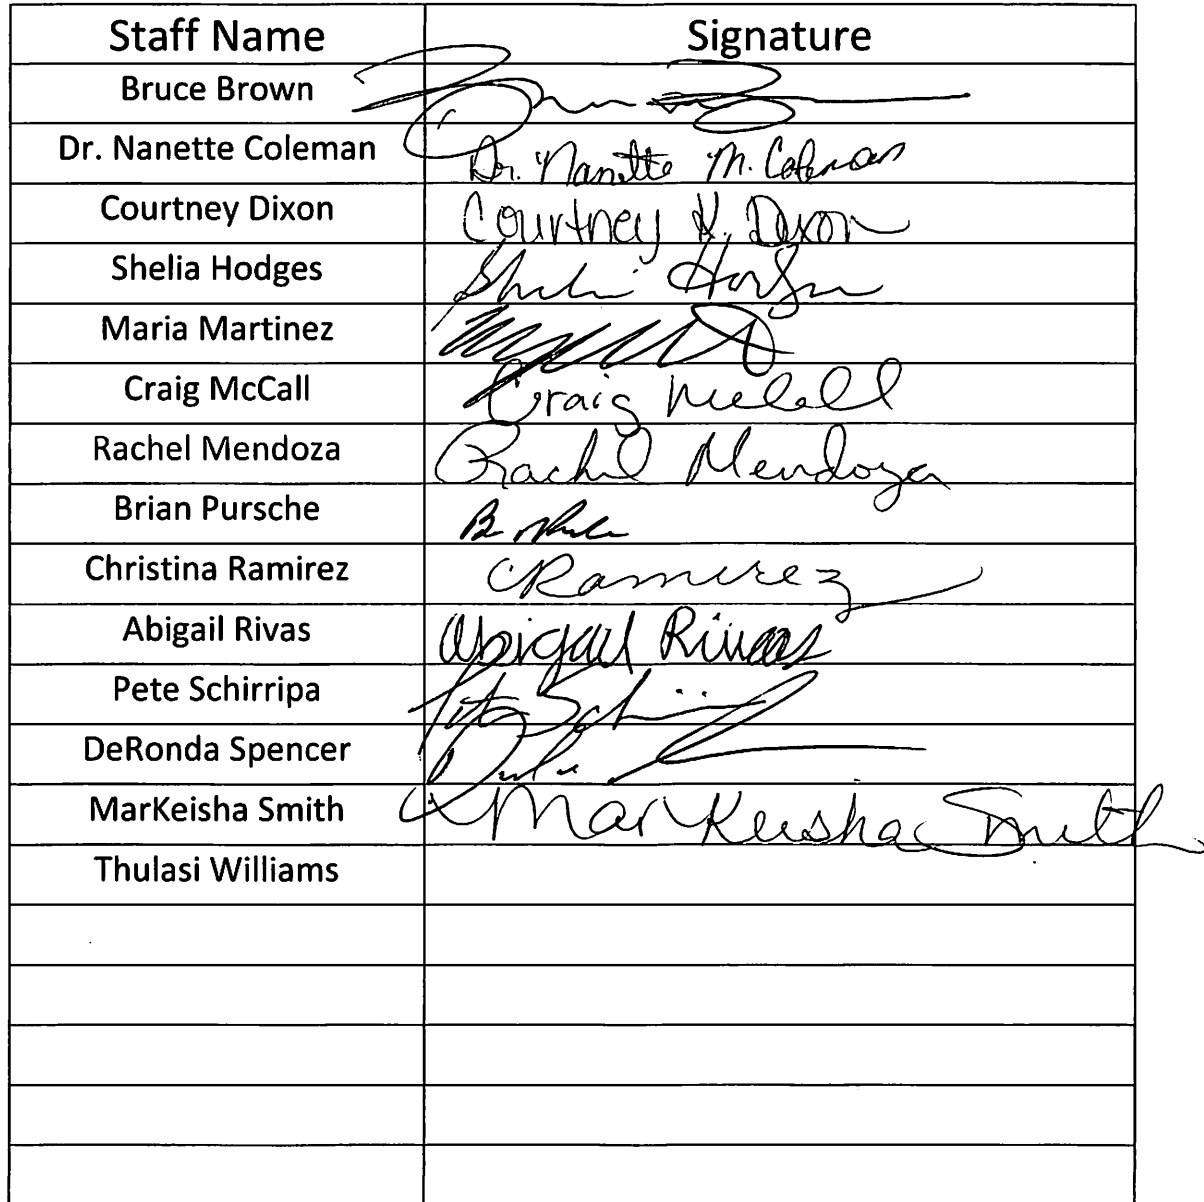 Staff Name Signature
Bruce Brown
Dr. Nanette Coleman Dr. Nanette M. Coleman
Courtney Dixon Courtney K. Dixon
Shelia Hodges
Maria Martinez
Craig McCall Craig McCall
Rachel Mendoza Rachel Mendoza
Brian Pursche
Christina Ramirez CRamirez
Abigail Rivas Abigail Rivas
Pete Schirripa
DeRonda Spencer
MarKeisha Smith MarKeisha Smith
Thulasi Williams